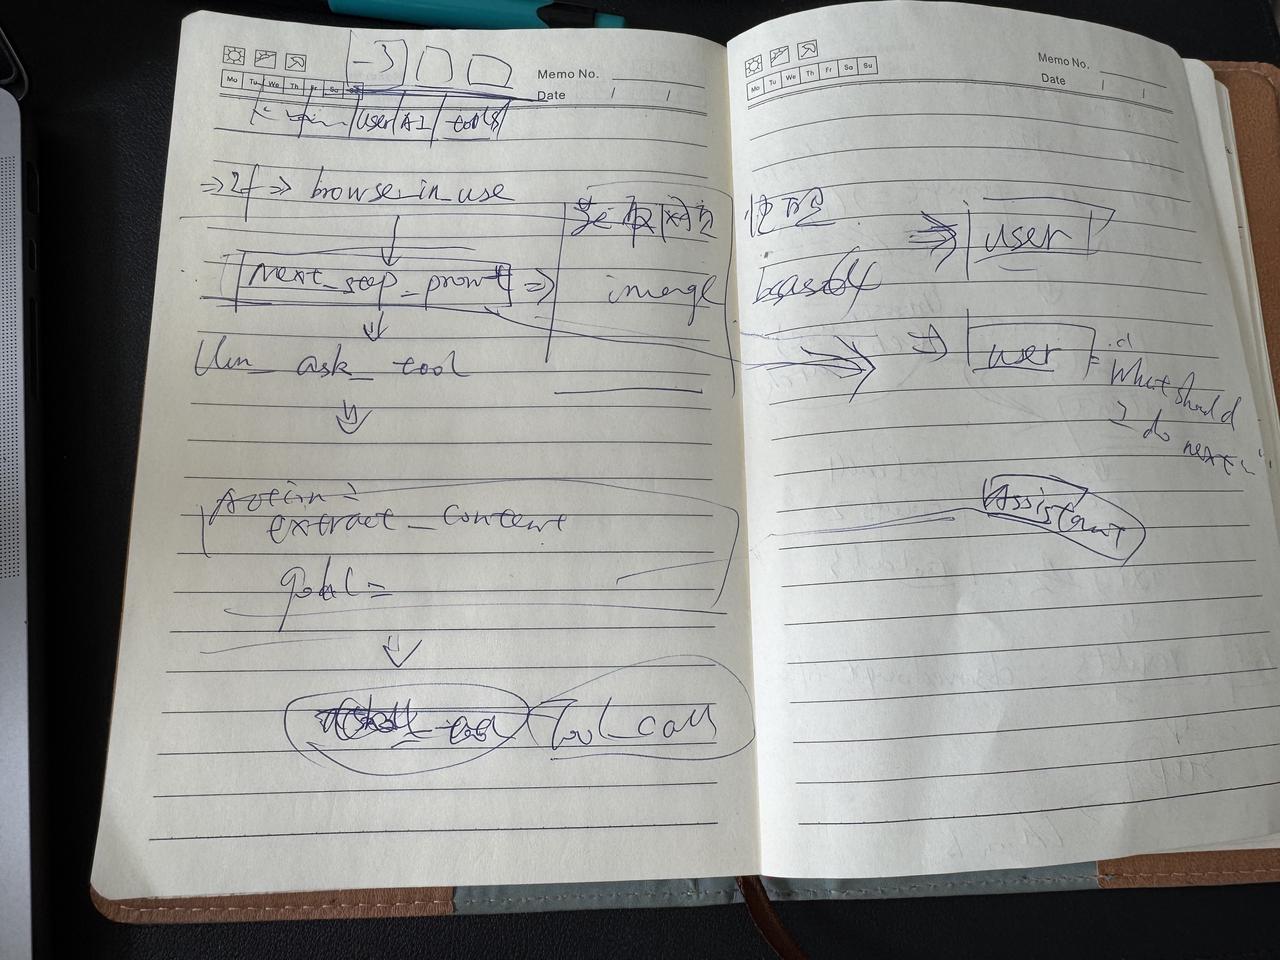 -3
Memo No.
Date / /
Mo Tu We Th Fr Sa Su
user AI tools
⇒ 2f ⇒ browse_in_use
next_step_promt ⇒
image
llm_ask_tool
Action:
extract_content
goal =
tool
Tool_call
Memo No.
Date / /
Mo Tu We Th Fr Sa Su
⇒ user
base64
⇒ user
what should
I do next
Assistant